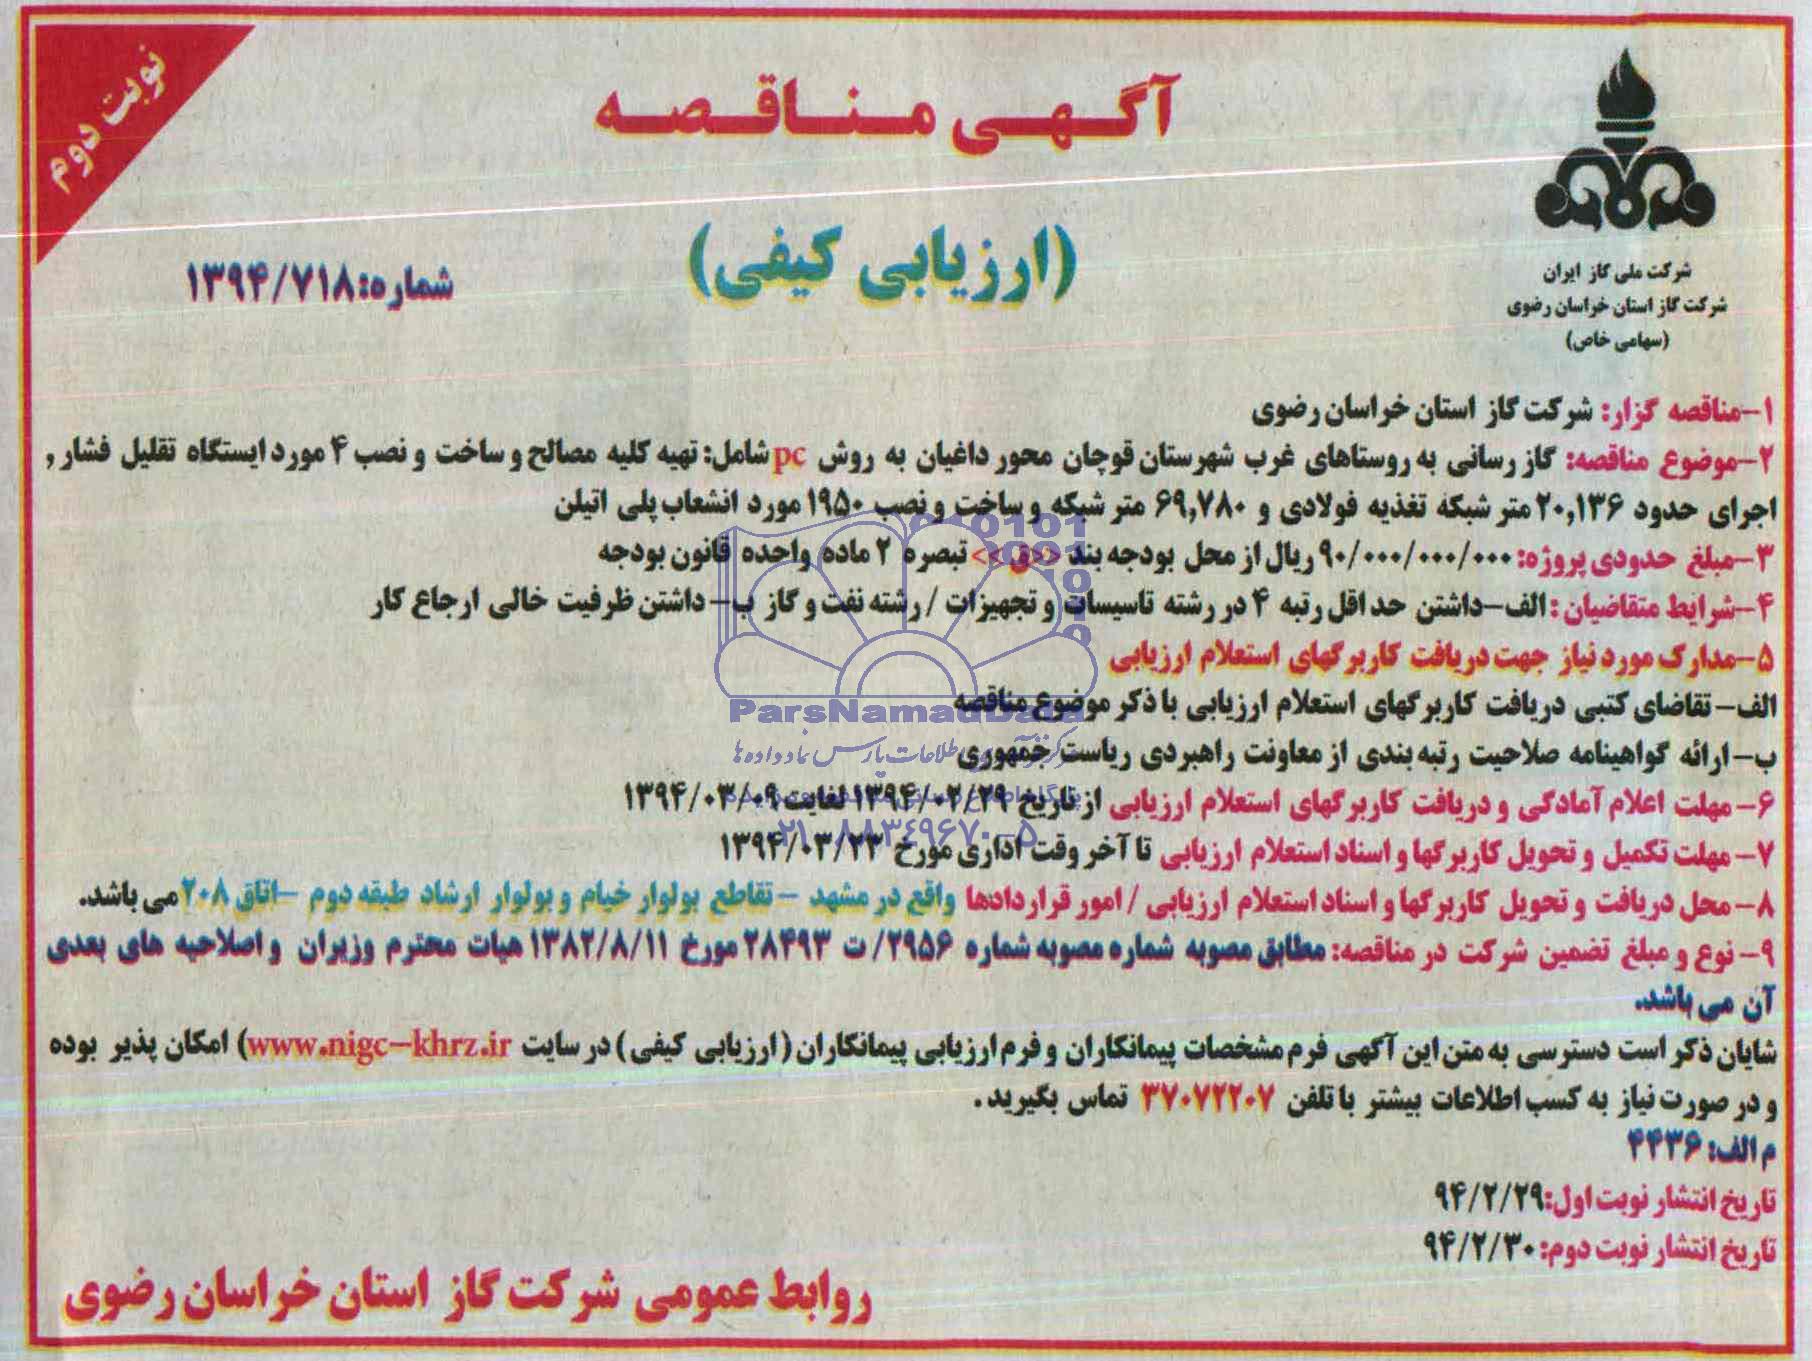 نوبت دوم
آگهی مناقصه
(ارزیابی کیفی)
شماره: ۱۳۹۴/۷۱۸
شرکت ملی گاز ایران
شرکت گاز استان خراسان رضوی
(سهامی خاص)
۱-مناقصه گزار: شرکت گاز استان خراسان رضوی
۲-موضوع مناقصه: گاز رسانی به روستاهای غرب شهرستان قوچان محور داغیان به روش pc شامل: تهیه کلیه مصالح و ساخت و نصب ۴ مورد ایستگاه تقلیل فشار,
اجرای حدود ۲۰,۱۳۶ متر شبکه تغذیه فولادی و ۶۹,۷۸۰ متر شبکه و ساخت و نصب ۱۹۵۰ مورد انشعاب پلی اتیلن
۳-مبلغ حدودی پروژه: ۹۰/۰۰۰/۰۰۰/۰۰۰ ریال از محل بودجه بند <<ق>> تبصره ۲ ماده واحده قانون بودجه
۴-شرایط متقاضیان: الف-داشتن حداقل رتبه ۴ در رشته تاسیسات و تجهیزات / رشته نفت و گاز ب- داشتن ظرفیت خالی ارجاع کار
۵-مدارک مورد نیاز جهت دریافت کاربرگهای استعلام ارزیابی
الف- تقاضای کتبی دریافت کاربرگهای استعلام ارزیابی با ذکر موضوع مناقصه
ب-ارائه گواهینامه صلاحیت رتبه بندی از معاونت راهبردی ریاست جمهوری
۶- مهلت اعلام آمادگی و دریافت کاربرگهای استعلام ارزیابی از تاریخ ۱۳۹۴/۰۲/۲۹ لغایت ۱۳۹۴/۰۳/۰۹
۷- مهلت تکمیل و تحویل کاربرگها و اسناد استعلام ارزیابی تا آخر وقت اداری مورخ ۱۳۹۴/۰۳/۲۳
۸- محل دریافت و تحویل کاربرگها و اسناد استعلام ارزیابی / امور قراردادها واقع در مشهد - تقاطع بولوار خیام و بولوار ارشاد طبقه دوم -اتاق ۲۰۸ می باشد.
۹- نوع و مبلغ تضمین شرکت در مناقصه: مطابق مصوبه شماره مصوبه شماره ۲۹۵۶/ ت ۲۸۴۹۳ مورخ ۱۳۸۲/۸/۱۱ هیات محترم وزیران و اصلاحیه های بعدی
آن می باشد.
شایان ذکر است دسترسی به متن این آگهی فرم مشخصات پیمانکاران و فرم ارزیابی پیمانکاران (ارزیابی کیفی) در سایت www.nigc-khrz.ir) امکان پذیر بوده
و در صورت نیاز به کسب اطلاعات بیشتر با تلفن ۳۷۰۷۲۲۰۷ تماس بگیرید.
م الف: ۴۴۳۶
تاریخ انتشار نوبت اول: ۹۴/۲/۲۹
تاریخ انتشار نوبت دوم: ۹۴/۲/۳۰
روابط عمومی شرکت گاز استان خراسان رضوی
ParsNamadData
۰۲۱-۸۸۳۴۹۶۷۰-۵